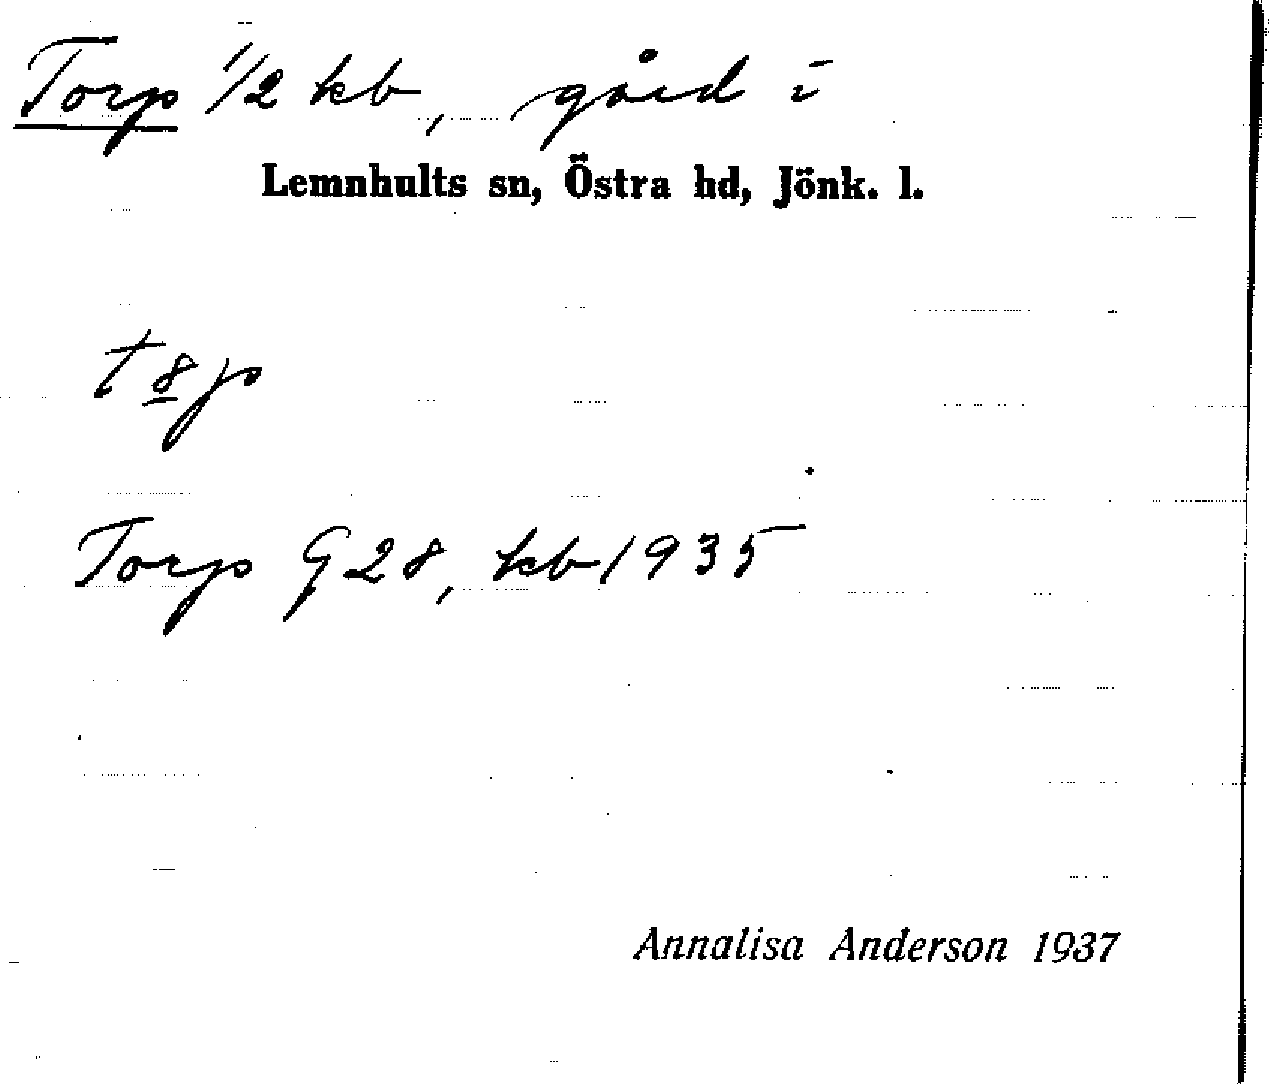 Torp 1/2 kb, gård i
Lemnhults sn, Östra hd, Jönk. l.
Torp G 28, kb 1935
Annalisa Anderson 1937